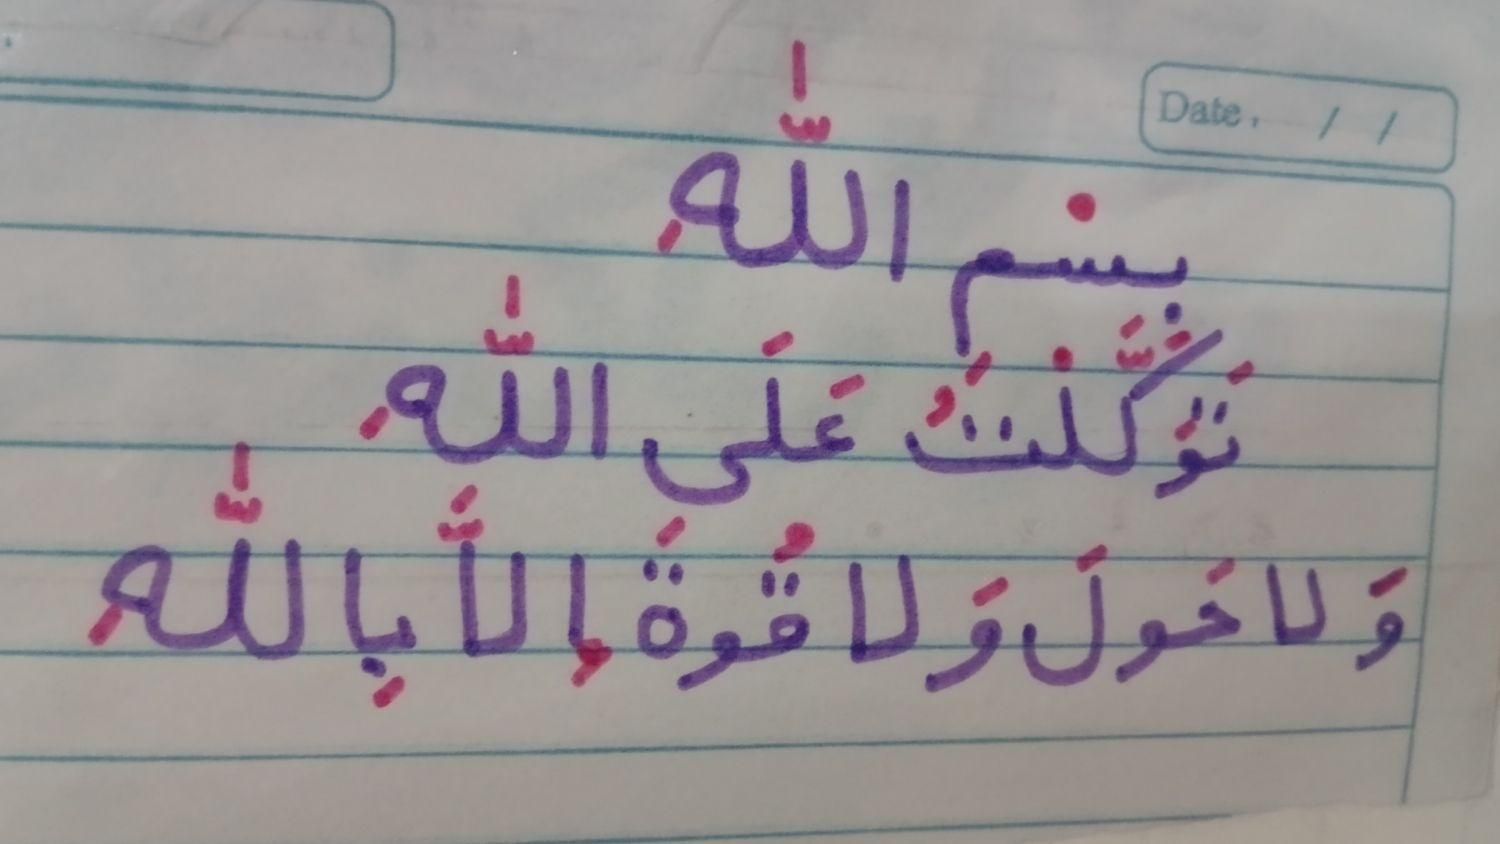 Date. / /
بسم اللّٰهِ
تَوَكَّلْتُ عَلَى اللّٰهِ
وَلا حَولَ وَلا قُوةَ إِلاَّ بِاللّٰهِ